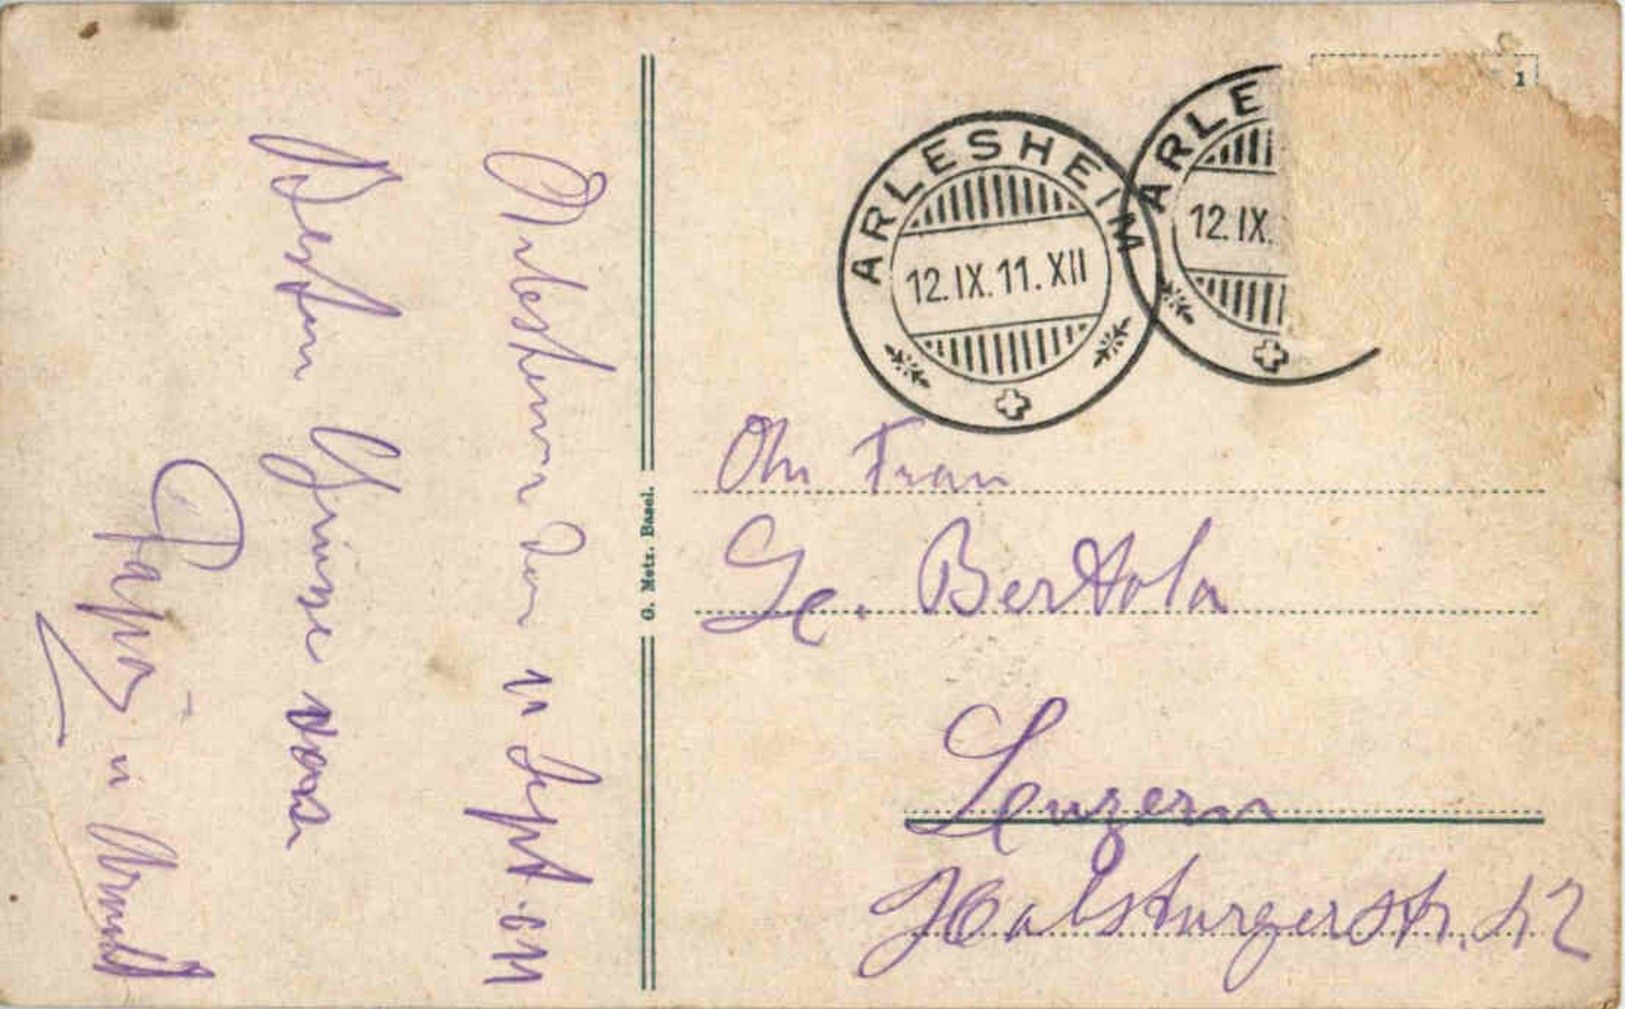 Arlesheim den 11 Sept. 911
Besten Grüsse von
Papa u
G. Metz. Basel.
1
ARLESHEIM
12. IX. 11. XII
ARLE
12. IX.
An Frau
Bertola
Luzern
Habsburgerstr. 42